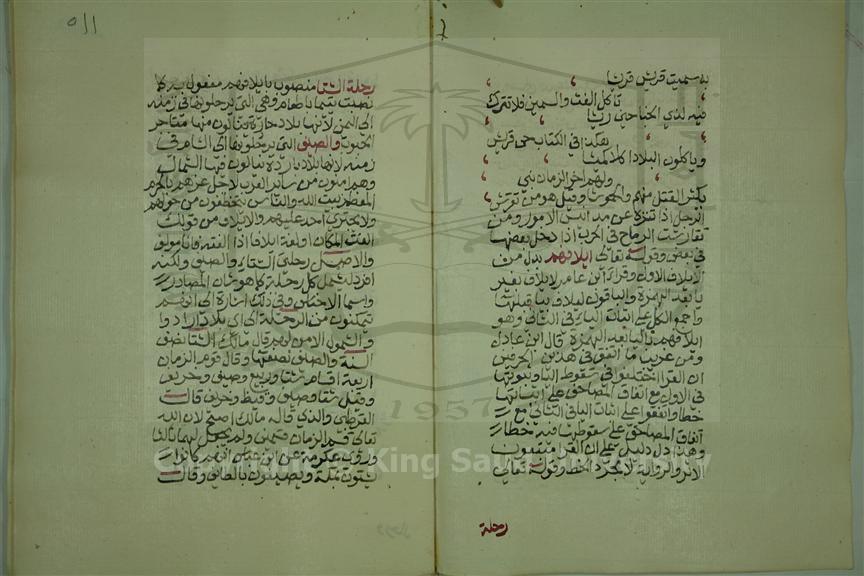 به سميت قريش قرشا
تأكل الغث والسمين فلا تترك
فيه لذي الجناحين ريشا
هكذا في الكتاب حي قريش
ويأكلون البلاد اكلا كميشا
ولهم اخر الزمان نبي
يكثر القتل منهم والخموشا وقيل هو من تقرش
الرجل اذا تنزه عن مدانس الامور ومن
تقارشت الرماح في الحرب اذا دخل بعضها
في بعض وقوله تعالى ايلافهم بدل من
الايلاف الاول وقرا ابن عامر لالاف بغير
يا بعد الهمزة والباقون لايلاف بيا قبلها
واجمع الكل على اثبات اليا في الثاني وهو
ايلافهم باليا بعد الهمزة قال ابن عادل
ومن غريب ما اتفق في هذين الحرفين
ان القرا اختلفوا في سقوط اليا وثبوتها
في الاول مع اتفاق المصاحف على اثباتها
خطا واتفقوا على اثبات اليا في الثاني مع
اتفاق المصاحف على سقوطها فيه خطا
وهذا دل دليل على ان القرا متبعون
الاثر والرواية لا مجرد الخط وقوله تعالى
رحلة
رحلة الشتا منصوب بايلافهم مفعول به كما
نصبت يتيما باطعام وهي التي يرحلونها في زمنه
الى اليمن لانها بلاد حارة ينالون منها متاجر
الجنوب والصيف التي يرحلونها الى الشام في
زمنه لانها بلاد باردة ينالون فيها الشمال
وهم امنون من سائر العرب لاجل عزهم بالحرم
المعظم بيت الله والناس يتخطفون من حولهم
ولا يجتري احد عليهم والايلاف من قولك
الفت المكان اولفه ايلافا اذا الفته فانا مولف
والاصل رحلتي الشتاء والصيف ولكنه
افرد ليشمل كل رحلة كما هو شان المصادر
واسما الاجناس وفي ذلك اشارة الى انهم
يتمكنون من الرحلة الى اي بلاد ارادوا
والشمول الامن لهم قال مالك الشتا نصف
السنة والصيف نصفها وقال قوم الزمان
اربعة اقسام شتا وربيع وصيف وخريف
وقيل شتا وصيف وقيظ وخريف قال
القرطبي والذي قاله مالك اصح لان الله
تعالى قسم الزمان قسمين ولم يجعل لهما ثالثا
وروى عكرمة عن ابن عباس انهم كانوا
يشتون بمكة ويصيفون بالطائف وقال
King Sau
1957